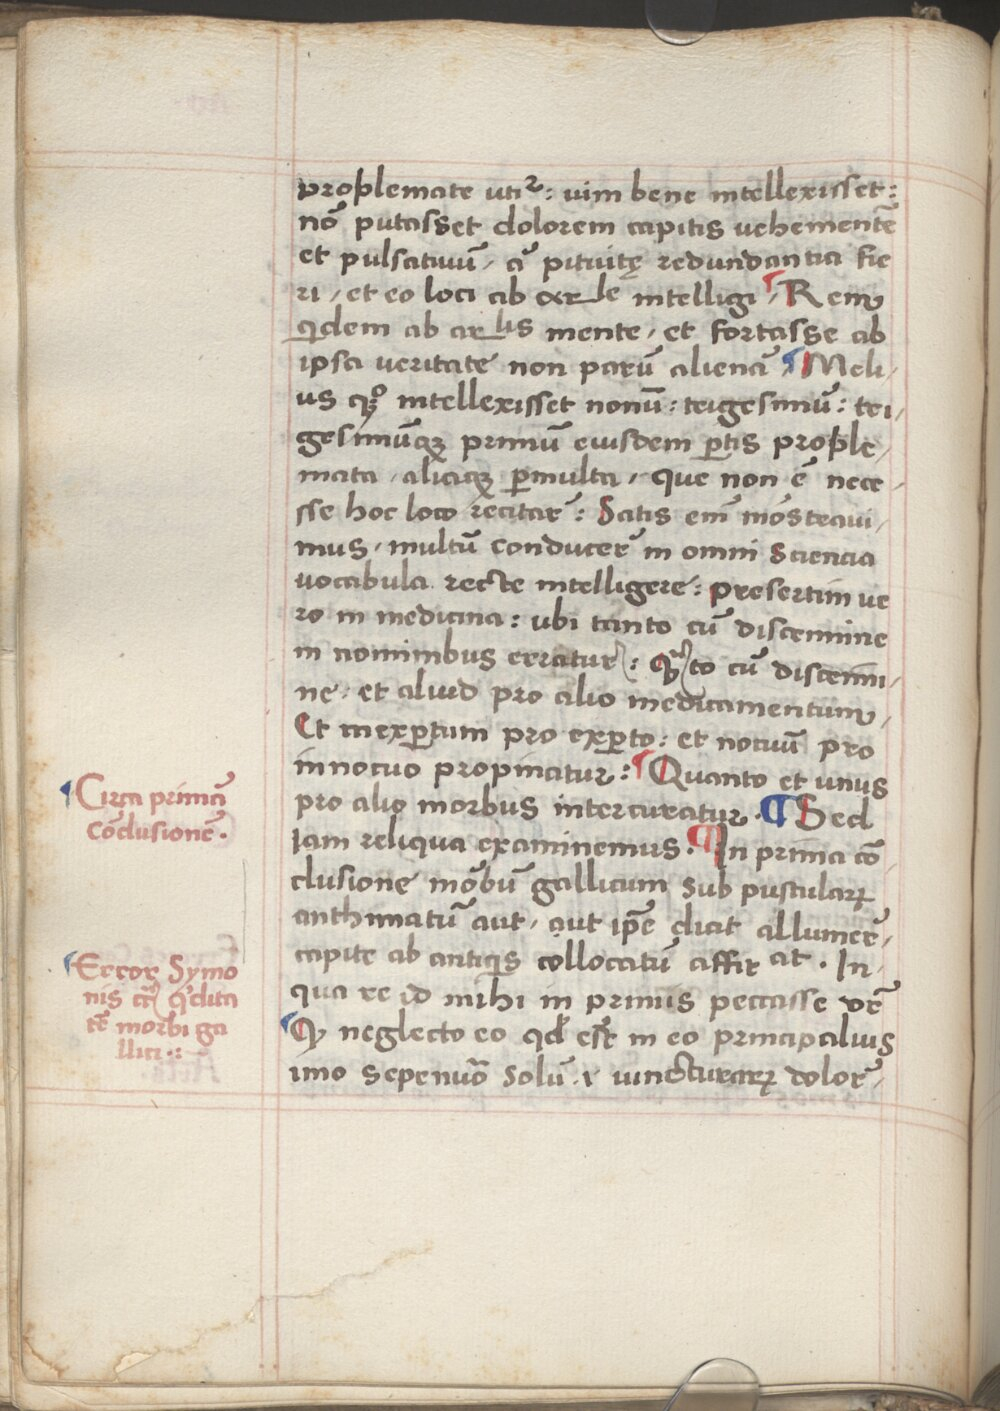 problemate utiꝛ: uim bene intellexisset:
nō putasset dolorem capitis uehementē
et pulsatiuū, ā pituitę redundantia fie
ri, et eo loci ab ar_le intelligi, Rem
qdem ab ar_lis mente, et fortasse ab
ipsa ueritate non parū alienā, Meli,
us qꝫ intellexisset nonū: trigesimū: tri,
gesimūqꝫ primū eiusdem ꝑtis proble,
mata, aliaqꝫ ꝑmulta, que non ē nece,
sse hoc loco recitar̄: Satis em̄ mōstraui,
mus, multū conducer̄ in omni sciencia
uocabula recte intelligere: presertim ue
ro in medicina: ubi tanto cū discrimine
in nominibus erratur: Qᵃto cū discrimi,
ne, et aliud pro alio medicamentum,
Et inexꝑtum pro exꝑto: et nociuū pro
innocuo propinatur: Quanto et unus
pro alio morbus intercuratur. ¶ Sed
iam reliqua examinemus. ¶ In prima cō
clusione mōbū gallicum sub pustularꝝ
anthimatū aut, aut ip̄e dicat allumer̄,
capite ab antiqis collocatū affirat. In
qua re id mihi in primis peccasse vr̄
Qꝫ neglecto eo qd est in eo principalius
imo sepenūo solū .i. iuncturarꝝ dolor̄,
¶ Circa primā
cōclusionē.
¶ Error Symo
nis cͬᵃ qͥdita
tē morbi ga
llici.: